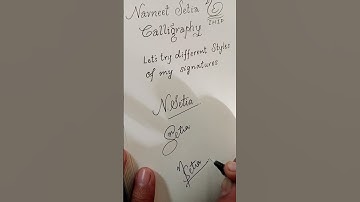 Navneet Setia
Calligraphy
Lets try different Styles
of my signatures
N.Setia
Setia
Setia